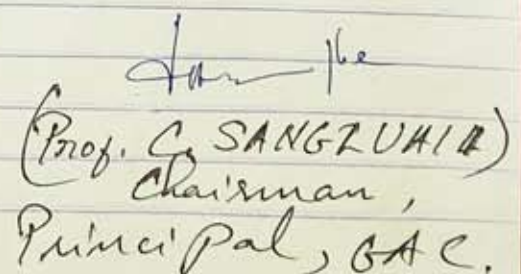 (Prof. C. SANGZUALA)
Chairman,
Principal, GAC.